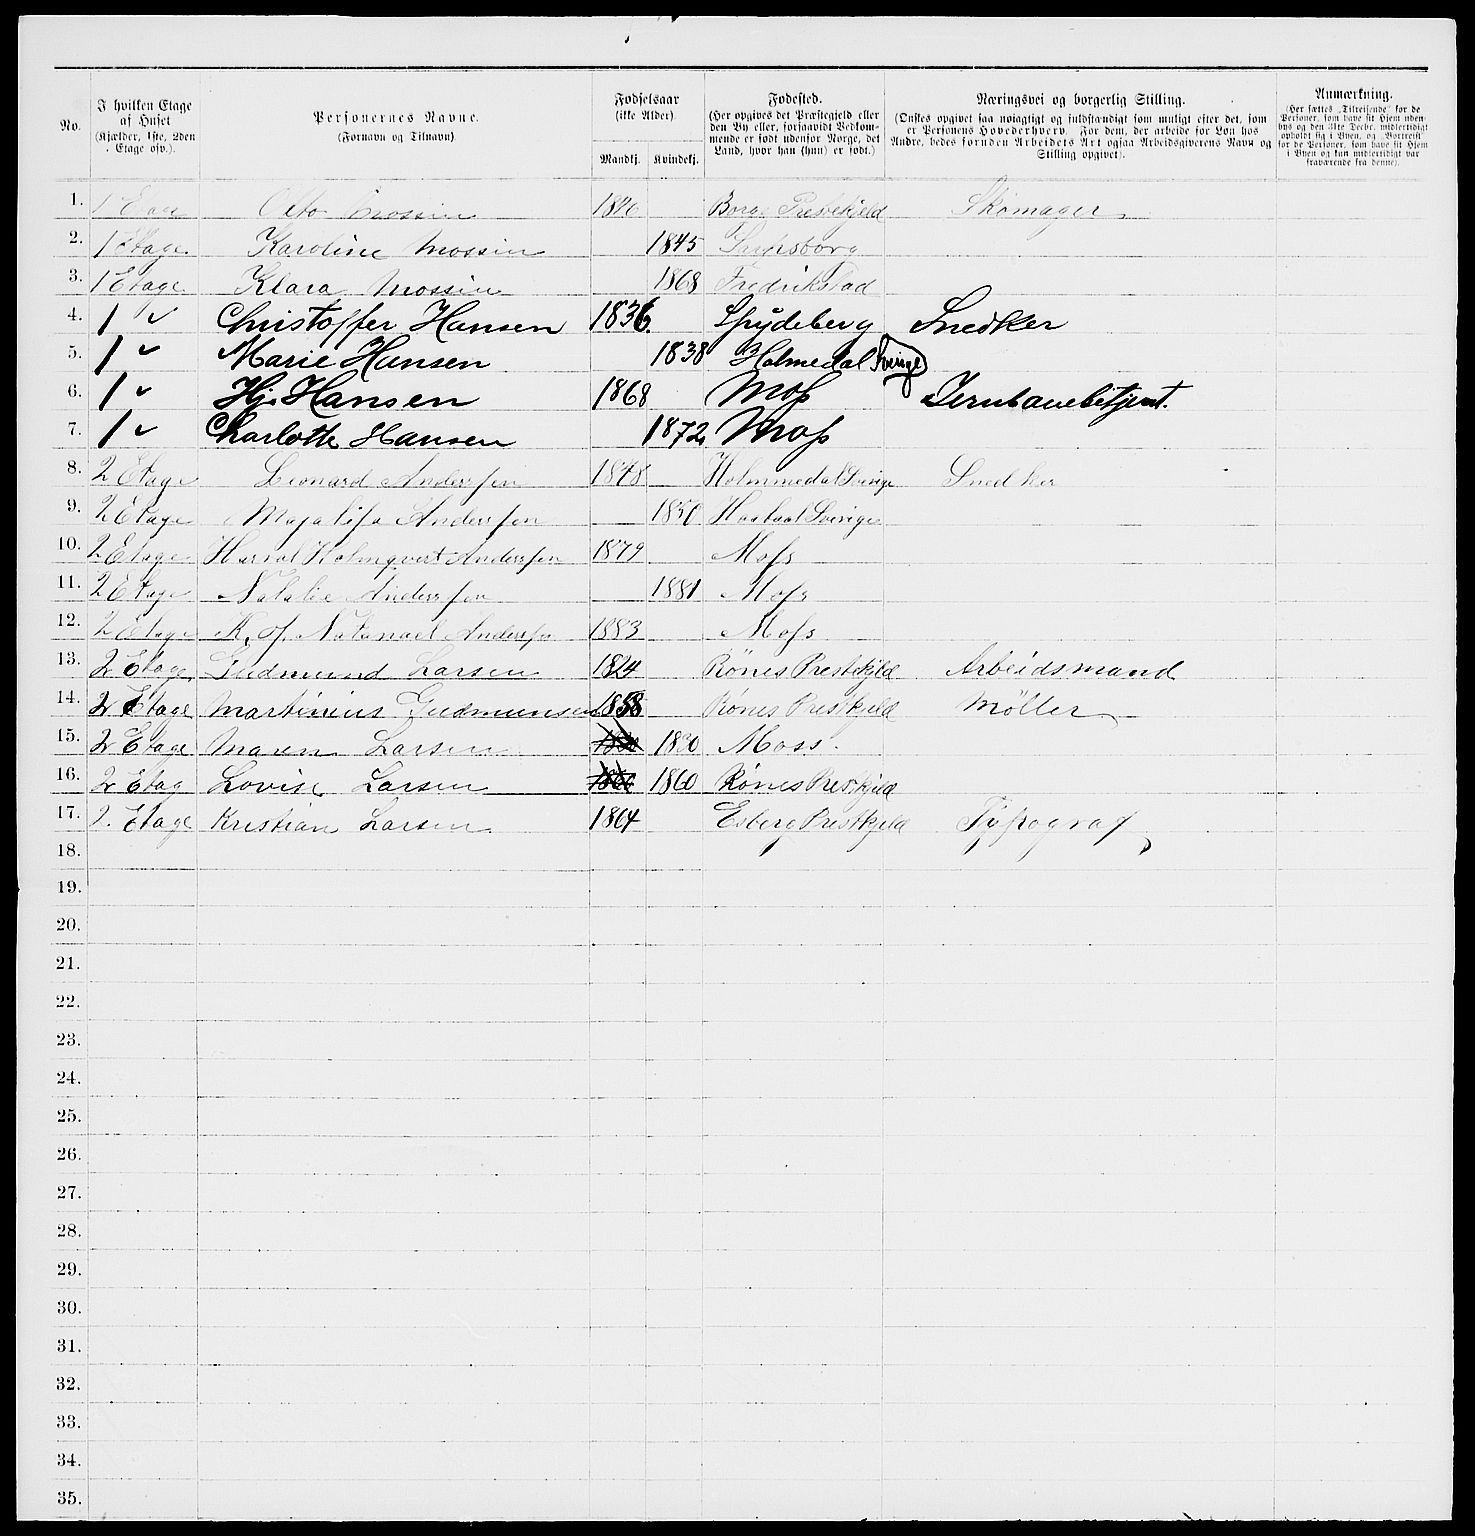 No. | I hvilken Etage af Huset (Kjælder, 1ste, 2den Etage osv.). | Personernes Navne. (Fornavn og Tilnavn) | Fødselsaar (ikke Alder). Mandkj. | Kvindekj. | Fødested. (Her opgives det Præstegjeld eller den By eller, forsaavidt Vedkommende er født udenfor Norge, det Land, hvor han (hun) er født.) | Næringsvei og borgerlig Stilling. (Ønskes opgivet saa nøiagtigt og fuldstændigt som muligt efter det, som er Personens Hovederhverv. For dem, der arbeide for Løn hos Andre, bedes foruden Arbeidets Art ogsaa Arbeidsgiverens Navn og Stilling opgivet). | Anmærkning. (Her sættes „Tilreisende" for de Personer, som have sit Hjem udenbys og den 31te Decbr. midlertidigt opholdt sig i Byen, og „Bortreist" for de Personer, som have sit Hjem i Byen og kun midlertidigt var fraværende fra denne).
1. 1 Etage Otto Mossin Borge Prestekjeld Skomager
2. 1 Etage Karoline Mossin 1845 Sarpsborg
3. 1 Etage Klara Mossin 1868 Fredrikstad
4. 1 " Christoffer Hansen 1836. Spydeberg Snedker
5. 1 " Marie Hansen 1838 Holmedal Sverige
6. 1 " Hj. Hansen 1868 Moss Jernbanebetjent.
7. 1 " Charlotte Hansen 1872 Moss
8. 2 Etage Leonard Anderssen 1848 Holmmedal Sverige Snedker
9. 2 Etage Majalisa Anderssen 1850 Sverige
10. 2 Etage Harral Holmqvert Anderssen 1879 Moss
11. 2 Etage Natalie Anderssen 1881 Moss
12. 2 Etage K. Of. Natanael Anderssen 1883 Moss
13. 2 Etage Gudmund Larsen 1824 Rönes Prestekjeld Arbeidsmand
14. 2 Etage Martinius Gudmunsen 1858 Rönes Prestkjeld Möller
15. 2 Etage Maren Larsen 1830 Moss.
16. 2 Etag Lovise Larsen 1860 Rönes Prestkjeld
17. 2. Etage Kristian Larsen 1864 Esberg Prestkjeld Typograf
18.
19.
20.
21.
22.
23.
24.
25.
26.
27.
28.
29.
30.
31.
32.
33.
34.
35.